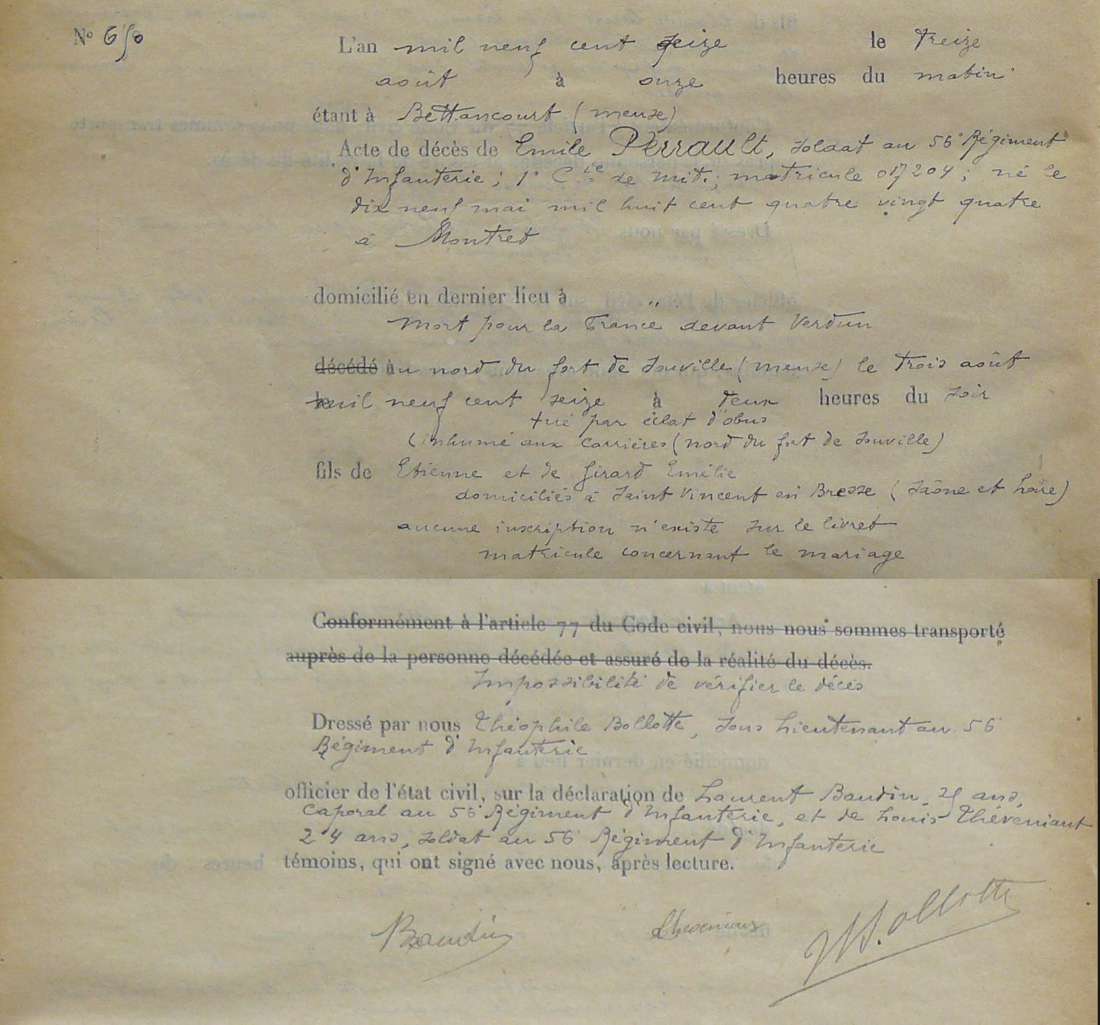 N° 650
L'an mil neuf cent seize le treize
août à onze heures du matin
étant à Bettancourt (meuse)
Acte de décès de Emile Perrault, soldat au 56e Régiment
d'Infanterie ; 1e Cie de mit. ; matricule 017204 ; né le
dix neuf mai mil huit cent quatre vingt quatre
à Montret
domicilié en dernier lieu à "
Mort pour la France devant Verdun
décédé au nord du fort de Souville (meuse) le trois août
mil neuf cent seize à deux heures du soir
tué par éclat d'obus
(inhumé aux carrières (nord du fort de Souville)
fils de Etienne et de Girard Emélie
domiciliés à Saint Vincent en Bresse (Saône et Loire)
aucune inscription n'existe sur le livret
matricule concernant le mariage
Conformément à l'article 77 du Code civil, nous nous sommes transporté
auprès de la personne décédée et assuré de la réalité du décès.
Impossibilité de vérifier le décès
Dressé par nous Théophile Bollotte, sous Lieutenant au 56
Régiment d'Infanterie
officier de l'état civil, sur la déclaration de Laurent Baudin, ans,
caporal au 56 Régiment d'Infanterie, et de Louis Théveniant
24 ans, soldat au 56 Régiment d'Infanterie
témoins, qui ont signé avec nous, après lecture.
Baudin Bollotte